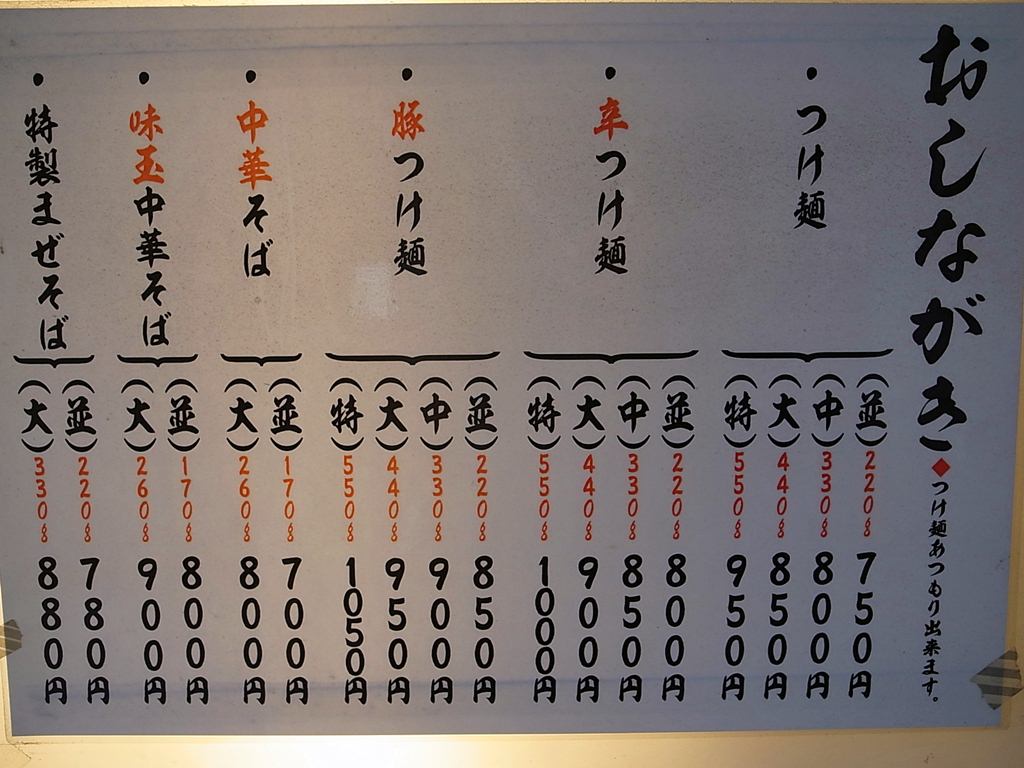 おしながき
◆つけ麺あつもり出来ます。
・つけ麺
(並)220g 750円
(中)330g 800円
(大)440g 850円
(特)550g 950円
・辛つけ麺
(並)220g 800円
(中)330g 850円
(大)440g 900円
(特)550g 1000円
・豚つけ麺
(並)220g 850円
(中)330g 900円
(大)440g 950円
(特)550g 1050円
・中華そば
(並)170g 700円
(大)260g 800円
・味玉中華そば
(並)170g 800円
(大)260g 900円
・特製まぜそば
(並)220g 780円
(大)330g 880円